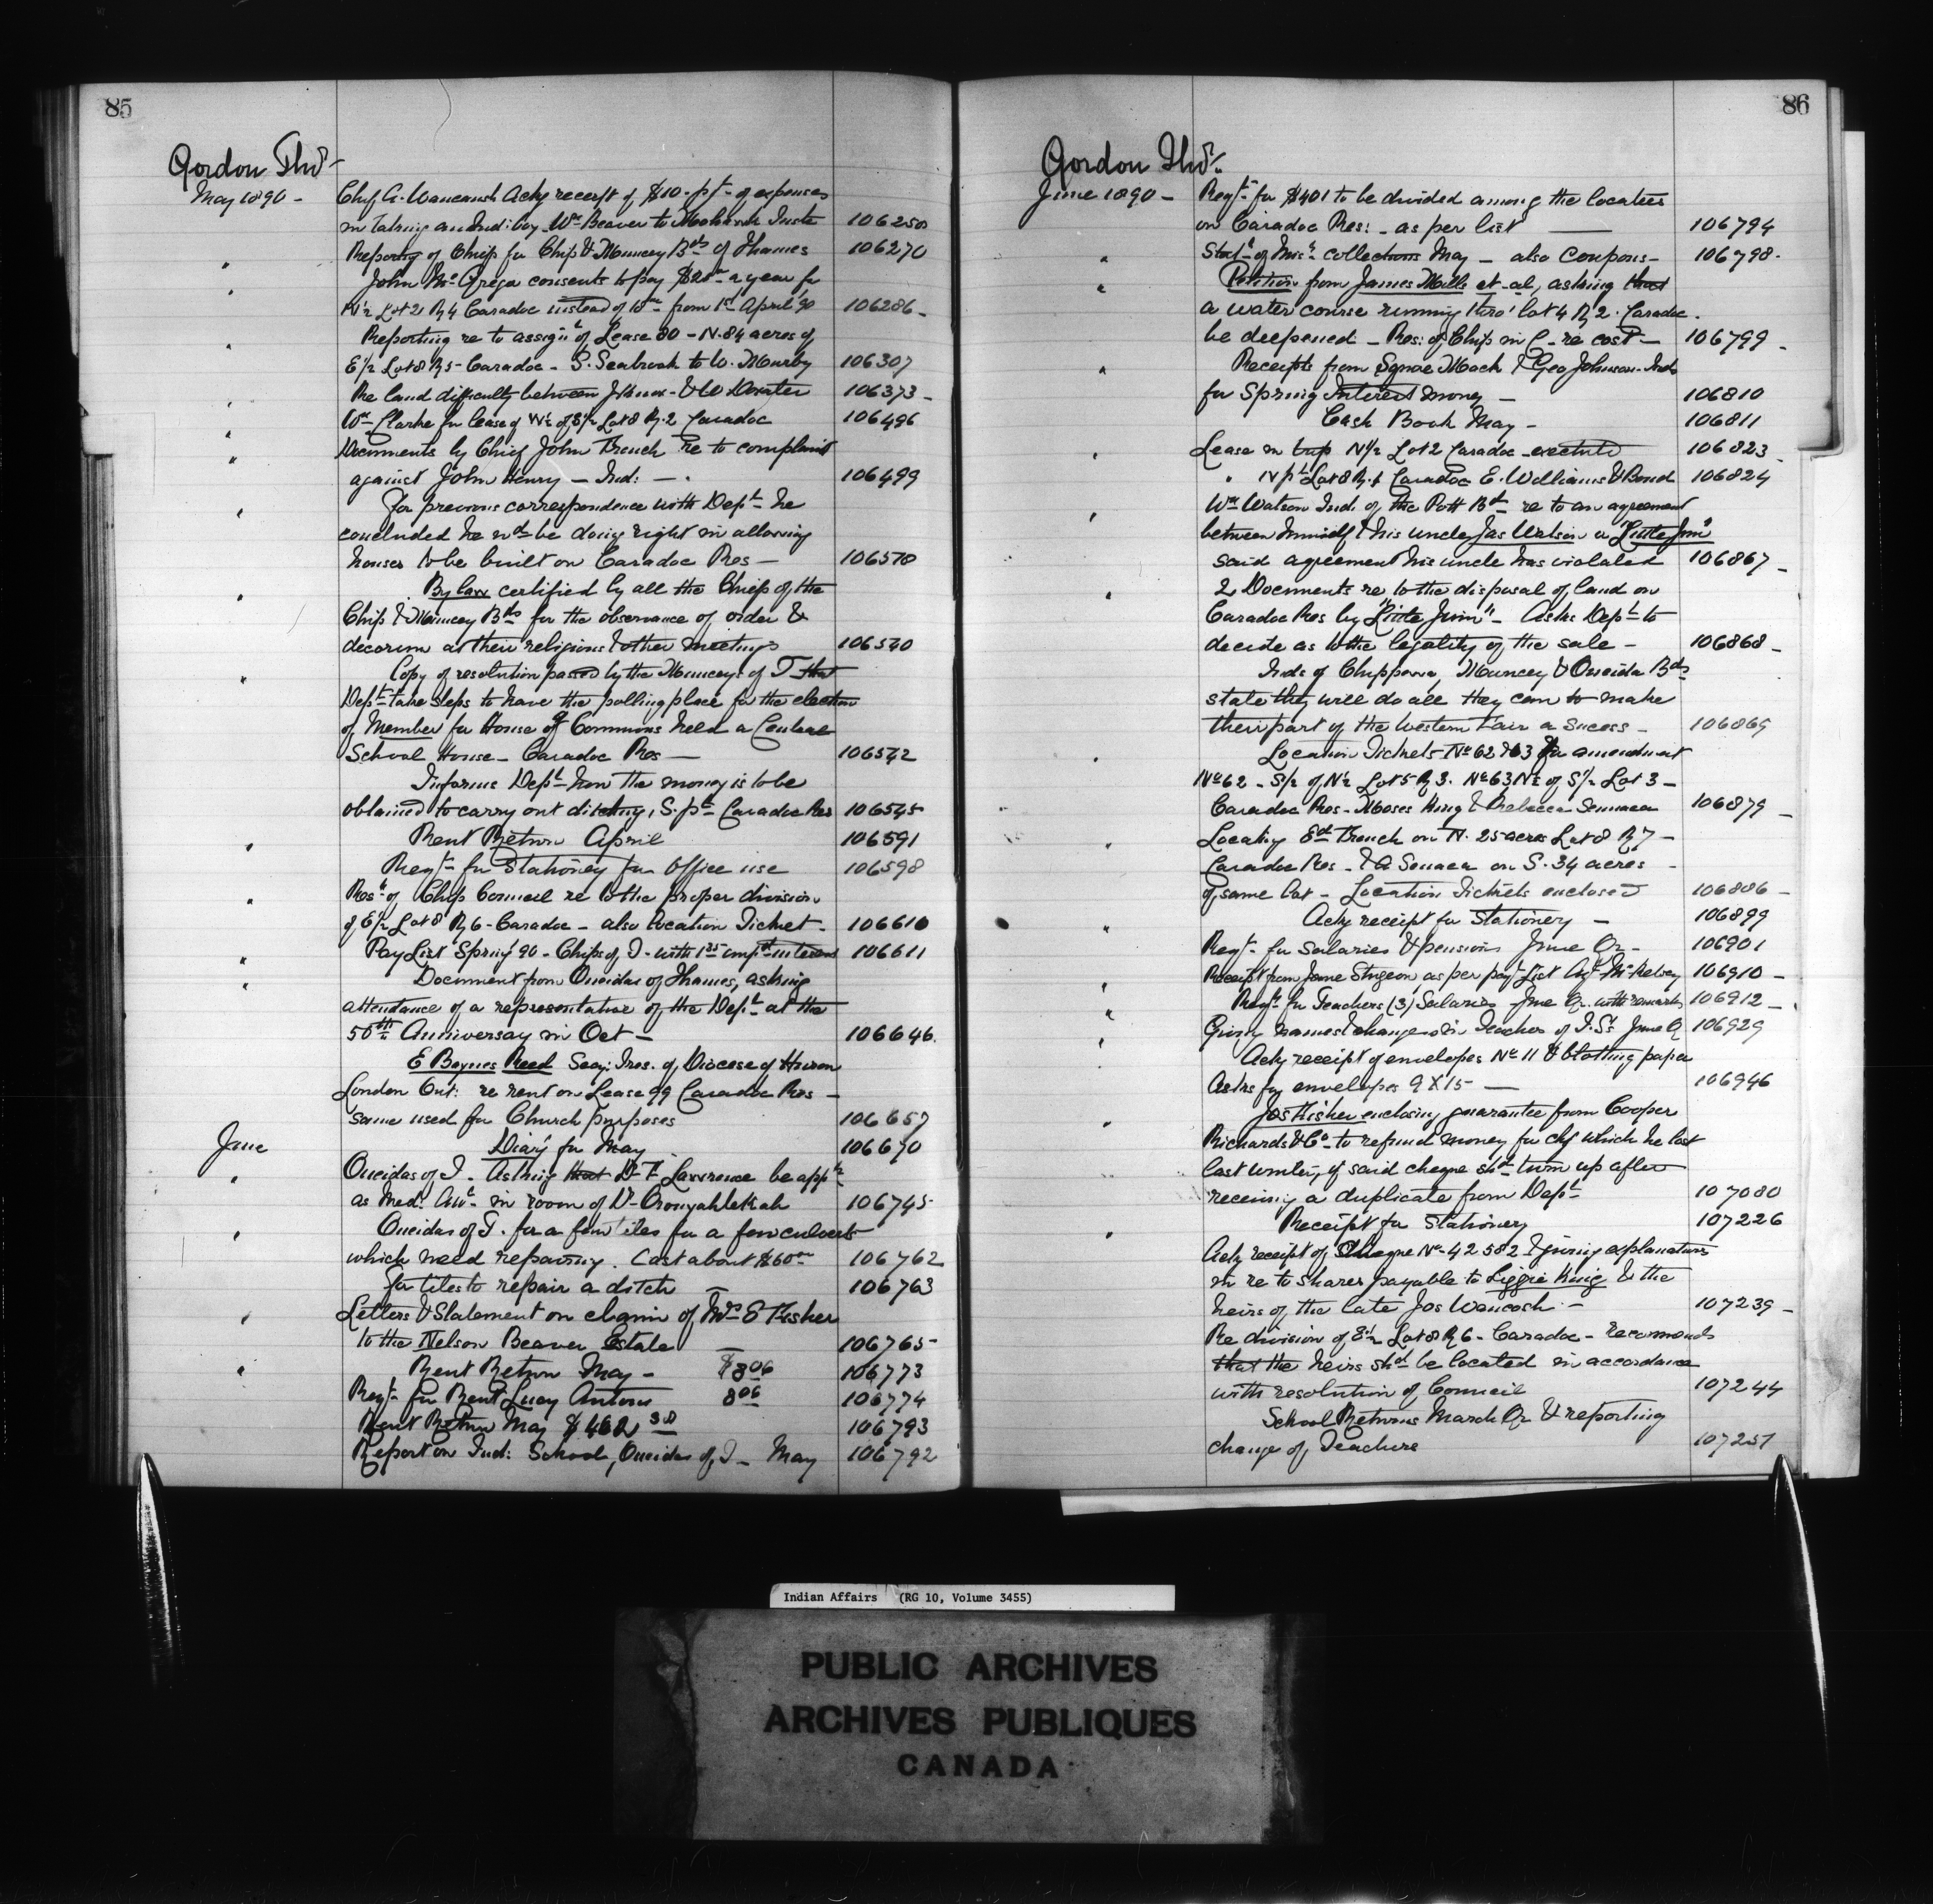 85
Gordon Thos
May 1890 -
Chief A. Wancaush Ackg receipt of $10 - pt of expenses
in taking an Ind: boy Wm Beaver to Mohawk Inste 106250
" Reporting of Chiefs for Chips & Muncey Bds of Thames 106270
" John McGregor consents to pay $20.00 a year for
N½ Lot 21 R4 Caradoc instead of 18.00 from 1st April '90 106286 -
" Reporting re to assign't of Lease 80 - N. 84 acres of
E½ Lot 8 R5 - Caradoc - S. Seabrook to W. Murby 106307
" Re land difficulty between & W Dexter 106373 -
" Wm Clarke for lease of W½ of S½ Lot 8 R. 2 Caradoc 106496
" Documents by Chief John French re to complaint
against John Henry - Ind: - 106499
" For previous correspondence with Dept he
concluded he wd be doing right in allowing
houses to be built on Caradoc Res - 106510
" By law certified by all the Chiefs of the
Chips & Muncey Bds for the observance of order &
decorum at their religious & other meetings 106540
" Copy of resolution passed by the Munceys of T that
Dept take steps to have the polling place for the election
of Member for House of Commons held a Central
School House - Caradoc Res - 106542
Informs Dept how the money is to be
obtained to carry out ditching, S. pt Caradoc Res 106545
" Rent Return April 106591
Reqt for Stationey for Office use 106598
" Resn of Chip Council re to the proper division
of E½ Lot 8 R6 - Caradoc - also Location Ticket - 106610
" Pay List Spring '90 - Chips of T - with 1st interest 106611
" Document from Oneidas of Thames, asking
attendance of a representative of the Dept at the
50th Anniversary in Oct - 106646.
E Baynes Reed Secy: Tres. of Diocese of Huron
London Ont: re rent on Lease 99 Caradoc Res -
same used for Church purposes 106657
June Diary for May 106670
" Oneidas of T. Asking that Dr F. Lawrence be appd
as Med: Attt in room of Dr Oronyahtekah 106745
" Oneidas of T. for a few tiles for a few culverts
which need repairing. Cost about $60.00 106762
For tiles to repair a ditch - 106763
" Letters & Statement on claim of Mrs E Fisher
to the Nelson Beaver Estate - 106765
" Rent Return May - $8.06 106773
Reqt for Rent Lucy Antone 8.06 106774
Rent Return May $462.38 106793
Report on Ind: School, Oneidas of T - May 106792
86
Gordon Thos
June 1890 - Reqt for $401 to be divided among the locatees
on Caradoc Res: - as per list - 106794
" Statt of collections May - also Coupons - 106798.
" Petition from James Mills et-al, asking that
a water course running thro' lot 4 R 2. Caradoc.
be deepened - Res: of Chips in C - re cost - 106799 -
" Receipts from Mack & Geo Johnson - Inds
for Spring Interest money - 106810
Cash Book May - 106811
" Lease in N½ Lot 2 Caradoc - executed 106823
" N pt Lot 8 R. 1 Caradoc E. Williams & Bond 106824
" Wm Watson Ind. of the Pott Bd re to an agreement
between himself & his uncle Jas Watson or "Little Jim"
said agreement his uncle has violated 106867 -
" 2 Documents re to the disposal of land on
Caradoc Res by "Little Jim" - Asks Dept to
decide as to the legality of the sale - 106868 -
Inds of Chippewa, Muncey & Oneida Bds
state they will do all they can to make
their part of the Western Fair a sucess - 106869
" Location Tickets No 62 & 63 for amendment
No 62 - S½ of N½ Lot 5 R 3. No 63 N½ of S½ Lot 3 -
Caradoc Res - Moses King & Rebecca Seneca 106879 -
" Locating Ed French on N. 25 acres Lot 8 R 7 -
Caradoc Res - & A Seneca on S. 34 acres -
of same lot - Location Tickets enclosed 106886 -
" Ackg receipt for Stationery - 106899
Reqt for Salaries & pensions June Qr - 106901
" Receipt from Jane Sturgeon as per pay List Agt McKelvey 106910 -
" Reqt for Teachers (3) Salaries - June Qr. with remarks 106912 -
" Giving names & change in Teacher of I. Ss June Q 106929
Ackg receipt of envelopes No 11 & blotting paper
Asks for envelopes 9 X 15 - 106946
" Jos Fisher enclosing guarantee from Cooper
Richards & Co to refund money for chq which he lost
last winter, if said cheque shd turn up after
receiving a duplicate from Dept 107080
" Receipt for Stationery 107226
Ackg receipt of Cheque No 42582 & giving explanations
in re to shares payable to Lizzie King & the
heirs of the late Jos Wancosh - 107239 -
Re division of E½ Lot 8 R 6 - Caradoc - recommends
that the heirs shd be located in accordance
with resolution of Council 107244
School Returns March Qr & reporting
change of Teachers 107257
Indian Affairs (RG 10, Volume 3455)
PUBLIC ARCHIVES
ARCHIVES PUBLIQUES
CANADA